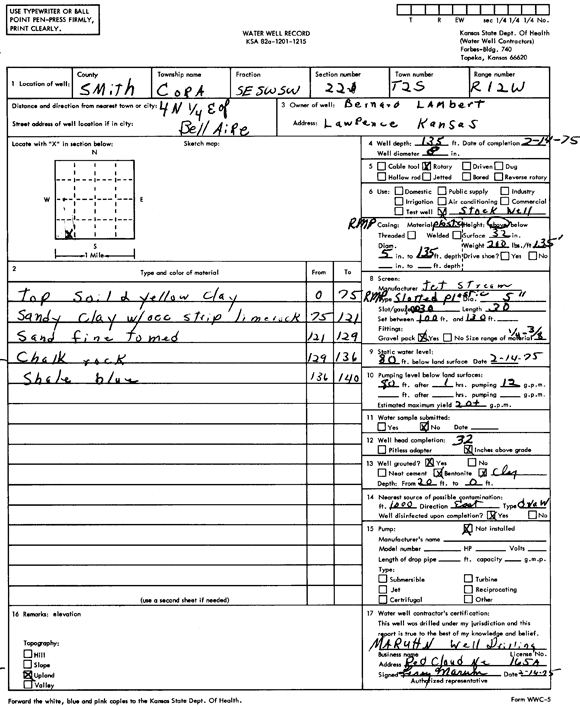 USE TYPEWRITER OR BALL
POINT PEN-PRESS FIRMLY,
PRINT CLEARLY.
WATER WELL RECORD
KSA 82a-1201-1215
T R EW sec 1/4 1/4 1/4 No.
Kansas State Dept. Of Health
(Water Well Contractors)
Forbes-Bldg. 740
Topeka, Kansas 66620
1 Location of well: County Township name Fraction Section number Town number Range number
Smith CoRA SE SW SW 22 T2S R12W
Distance and direction from nearest town or city: 4 N 1/4 E of
Street address of well location if in city: Bell Aire
3 Owner of well: Bernard LAMBert
Address: Lawrence Kansas
Locate with "X" in section below: Sketch map:
N
W E
X
S
1 Mile
4 Well depth: 135 ft. Date of completion 2-14-75
Well diameter 8 in.
5 Cable tool X Rotary Driven Dug
Hollow rod Jetted Bored Reverse rotary
6 Use: Domestic Public supply Industry
Irrigation Air conditioning Commercial
Test well Stock Well
RMP Casing: Material plastic Height: above below
Threaded Welded Surface 32 in.
Diam. Weight 200 lbs./ft
5 in. to 135 ft. depth Drive shoe? Yes No
in. to ft. depth
2 Type and color of material From To
Top Soil & yellow Clay 0 75
Sandy Clay w/occ strip limerock 75 121
Sand fine to med 121 129
Chalk rock 129 136
Shale blue 136 140
(use a second sheet if needed)
8 Screen:
Manufacturer Jet Stream
RMP Type Slotted plastic Dia. 5"
Slot/gauze .030 Length 20
Set between 100 ft. and 120 ft.
Fittings:
Gravel pack X Yes No Size range of material 1/4-3/8
9 Static water level:
80 ft. below land surface Date 2-14-75
10 Pumping level below land surfaces:
80 ft. after 1 hrs. pumping 12 g.p.m.
ft. after hrs. pumping g.p.m.
Estimated maximum yield 20+ g.p.m.
11 Water sample submitted:
Yes X No Date
12 Well head completion: 32
Pitless adapter X Inches above grade
13 Well grouted? X Yes No
Neat cement X Bentonite X Clay
Depth: From 20 ft. to 0 ft.
14 Nearest source of possible contamination:
ft. 1000 Direction East Type
Well disinfected upon completion? X Yes No
15 Pump: X Not installed
Manufacturer's name
Model number HP Volts
Length of drop pipe ft. capacity g.m.p.
Type:
Submersible Turbine
Jet Reciprocating
Centrifugal Other
16 Remarks: elevation
Topography:
Hill
Slope
X Upland
Valley
17 Water well contractor's certification:
This well was drilled under my jurisdiction and this
report is true to the best of my knowledge and belief.
MARUHN Well Drilling
Business name License No.
Address Red Cloud Ne 165A
Signed Date 2-14-75
Authorized representative
Forward the white, blue and pink copies to the Kansas State Dept. Of Health.
Form WWC-5